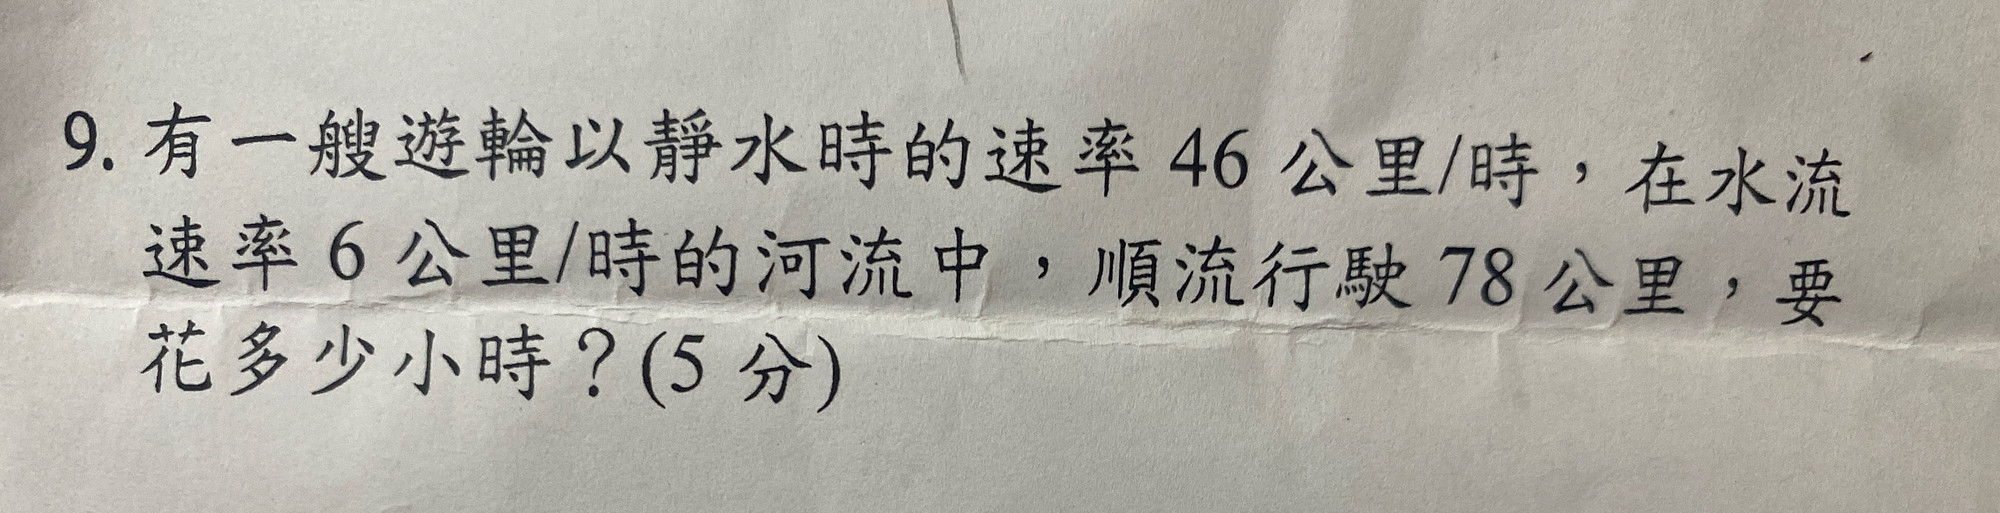 9. 有一艘遊輪以靜水時的速率 46 公里/時，在水流
速率 6 公里/時的河流中，順流行駛 78 公里，要
花多少小時？(5 分)